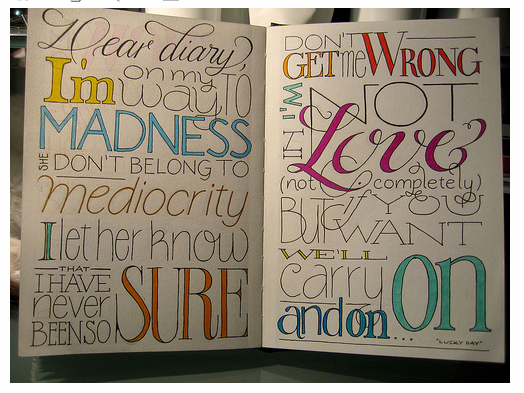 Dear diary,
I'm on my way TO
MADNESS
SHE DON'T BELONG TO
mediocrity
I let her know
THAT
I HAVE
never
BEEN SO SURE
DON'T
GET me WRONG
I'M NOT
IN Love
(not completely)
BUT if YOU
WANT
WE'LL
carry ON
and on...
"LUCKY DAY"